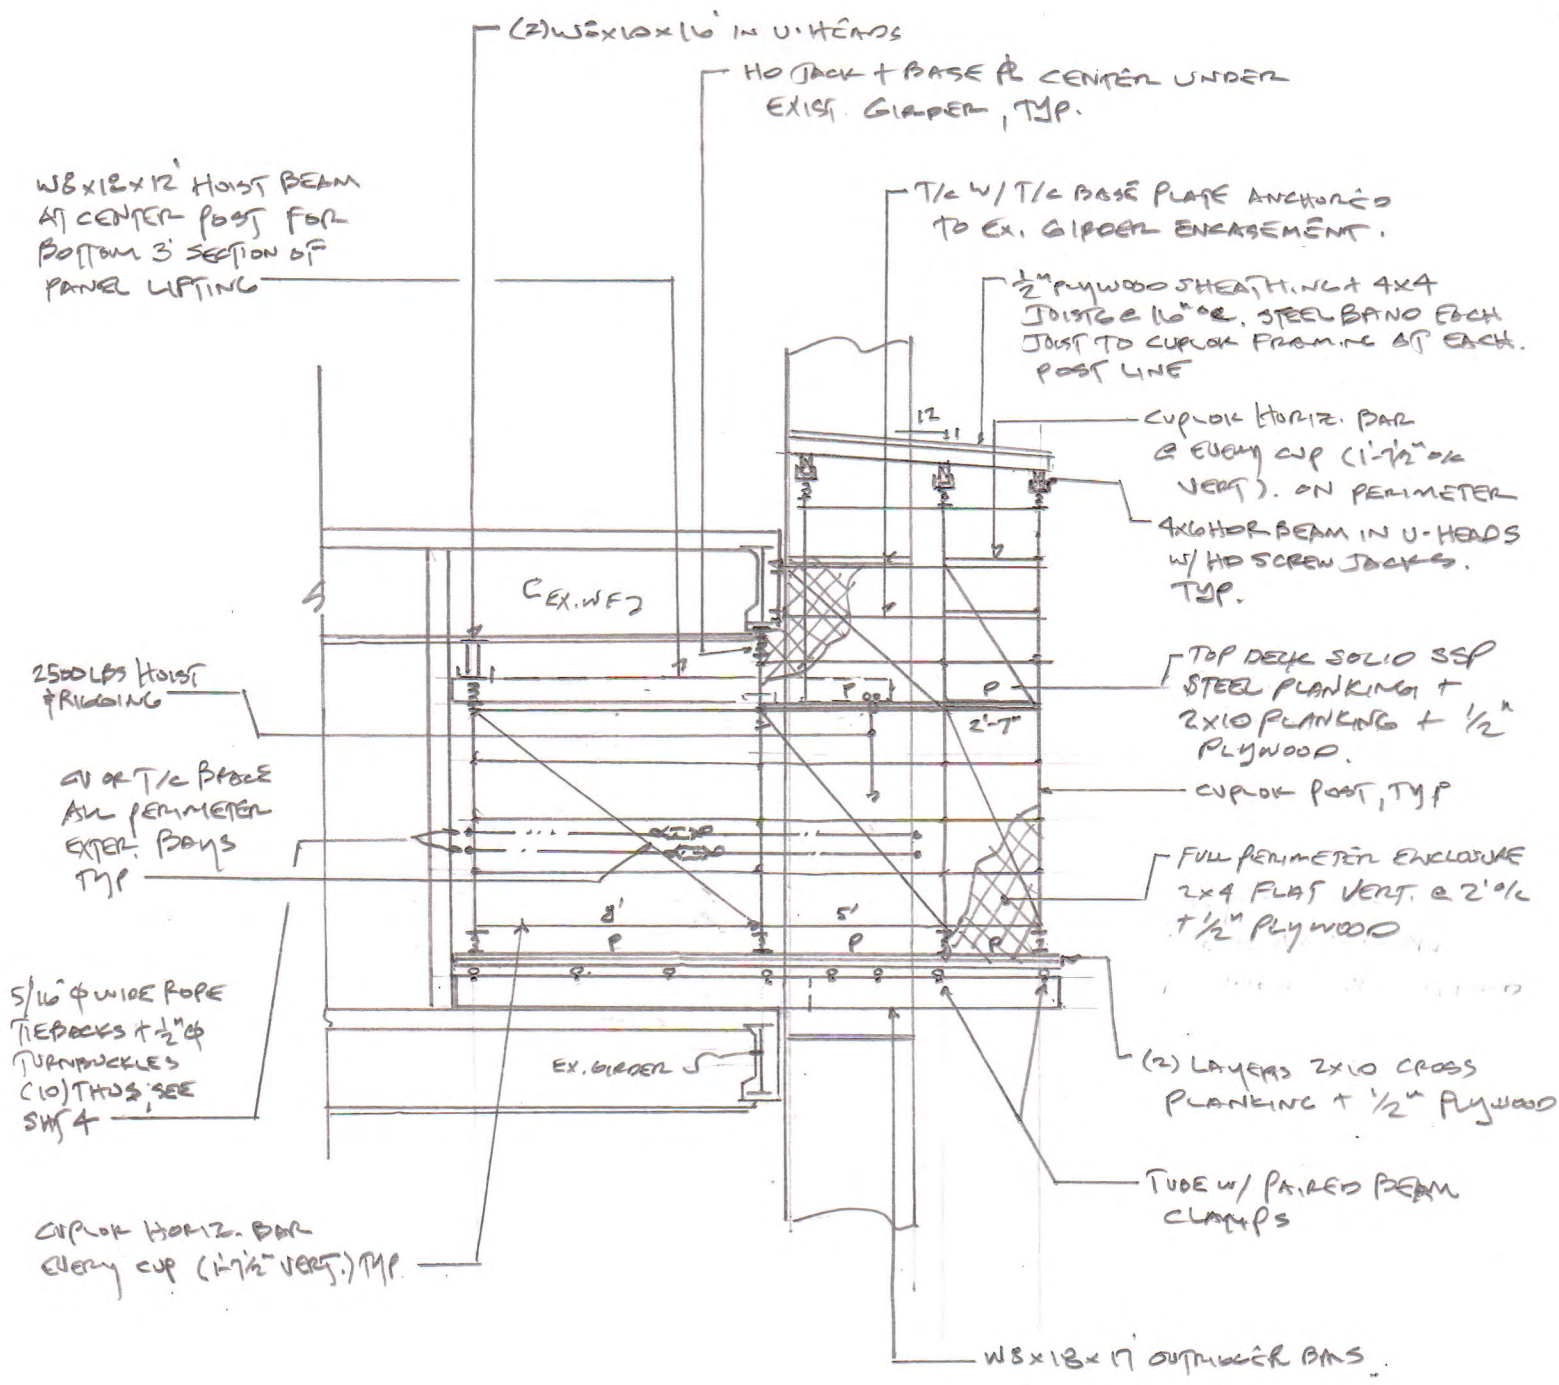 (2)W8x10x16' IN U-HEADS
HD JACK + BASE PL CENTER UNDER
EXIST. GIRDER, TYP.
W8x18x12' HOIST BEAM
AT CENTER POST FOR
BOTTOM 3' SECTION OF
PANEL LIFTING
T/C W/ T/C BASE PLATE ANCHORED
TO EX. GIRDER ENCASEMENT.
1/2" PLYWOOD SHEATHING + 4x4
JOISTS @ 16" OC. STEEL BAND EACH
JOIST TO CUPLOK FRAMING AT EACH.
POST LINE
12
1
CUPLOK HORIZ. BAR
@ EVERY CUP (1'-7 1/2" o/c
VERT). ON PERIMETER
4x6 HDR BEAM IN U-HEADS
W/ HD SCREW JACKS.
TYP.
EX. WF
2500 LBS HOIST
& RIGGING
TOP DECK SOLID SSP
STEEL PLANKING +
2x10 PLANKING + 1/2"
PLYWOOD.
P
P
2'-7"
CUPLOK POST, TYP
CU OR T/C BRACE
ALL PERIMETER
EXTER. BAYS
TYP
FULL PERIMETER ENCLOSURE
2x4 FLAT VERT. @ 2' o/c
+ 1/2" PLYWOOD
8'
5'
P
P
P
5/16" Φ WIRE ROPE
TIEBACKS + 1/2" Φ
TURNBUCKLES
(10) THUS, SEE
SHT 4
EX. GIRDER
(2) LAYERS 2x10 CROSS
PLANKING + 1/2" PLYWOOD
TUBE W/ PAIRED BEAM
CLAMPS
CUPLOK HORIZ. BAR
EVERY CUP (1'-7 1/2" VERT.) TYP.
W8x18x17' OUTRIGGER BMS.